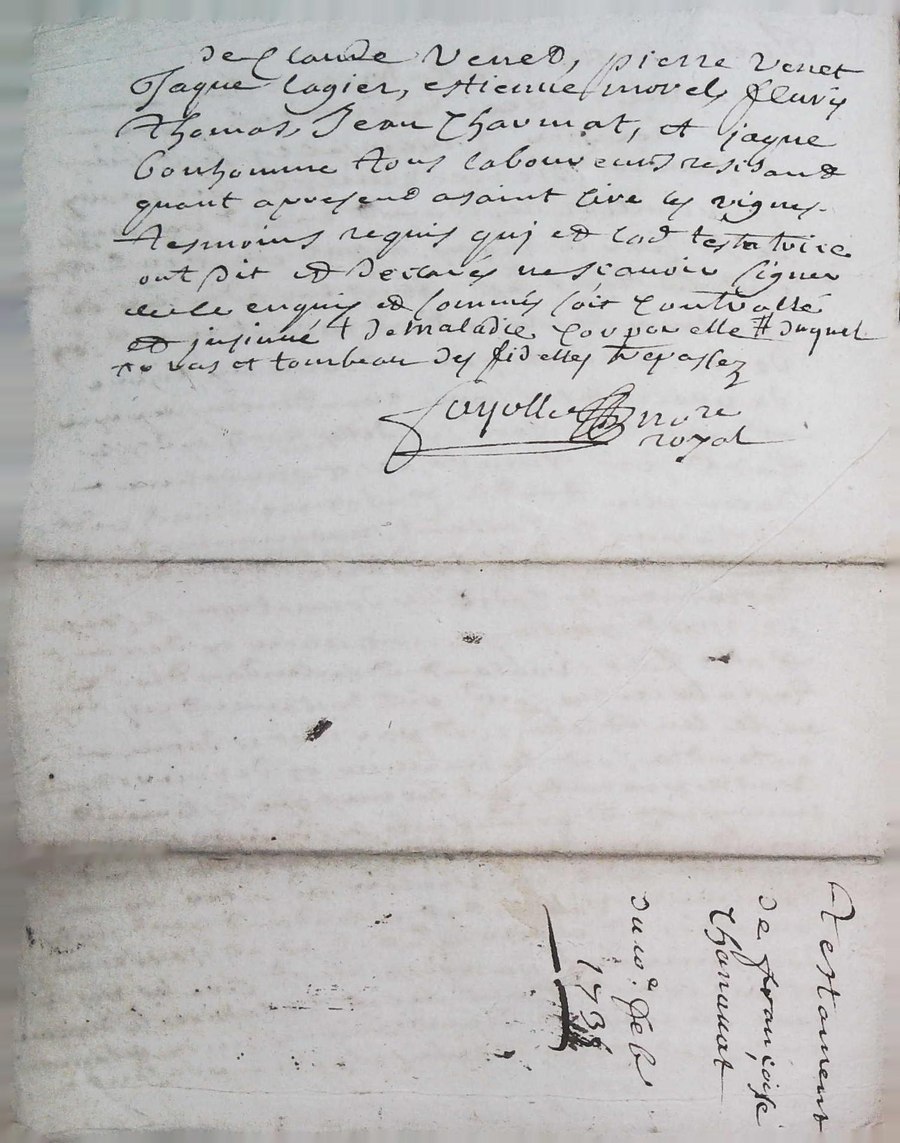 de Claude Verred, pierre Venet
Jaque lagier, estienne morel, fleury
thomas, Jean Charmat, et jaque
bonhomme tous laboureurs residand
quant apresend asaint cire les vignes
tesmoins requis quj et lad testatrice
ont dit et declarés nescavoir signer
de le enquis et sommés soit controllé
et jnsinué † de maladie corporelle # duquel
vas et tombeau des fidelles trepassez
fayolle nore
royal
testament
de françoise
Charmat
du 10e. feb
173